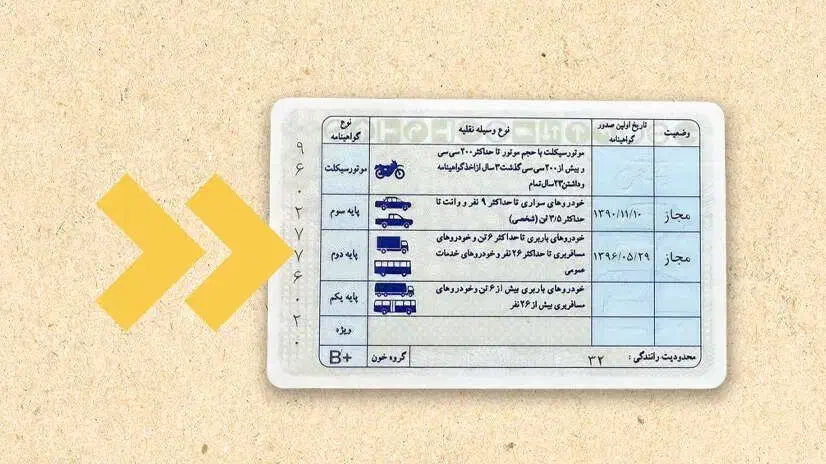 نوع گواهینامه
نوع وسیله نقلیه
تاریخ اولین صدور گواهینامه
وضعیت
موتورسیکلت
موتورسیکلت با حجم موتور تا حداکثر ۲۰۰ سی سی
و بیش از ۲۰۰ سی سی گذشت ۳ سال از اخذ گواهینامه
و داشتن ۲۳ سال تمام
پایه سوم
خودروهای سواری تا حداکثر ۹ نفر و وانت تا
حداکثر ۳/۵ تن (شخصی)
۱۳۹۰/۱۱/۱۰
مجاز
پایه دوم
خودروهای باربری تا حداکثر ۶ تن و خودروهای
مسافربری تا حداکثر ۲۶ نفر و خودروهای خدمات
عمومی
۱۳۹۶/۰۵/۲۹
مجاز
پایه یکم
خودروهای باربری بیش از ۶ تن و خودروهای
مسافربری بیش از ۲۶ نفر
ویژه
محدودیت رانندگی : ۳۲
گروه خون
B+
۹
۶
۰
۲
۷
۷
۶
۰
۲
۰